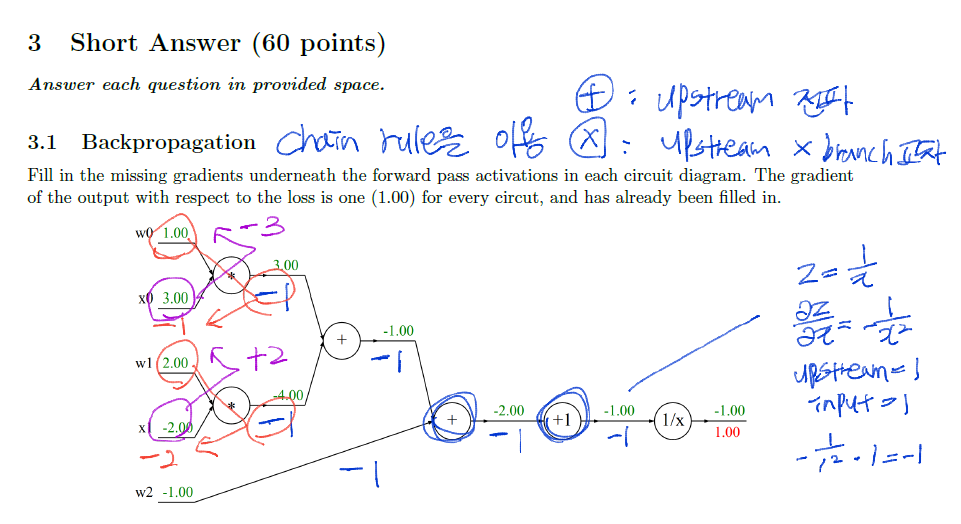 3 Short Answer (60 points)
Answer each question in provided space.
⊕ : upstream 전파
3.1 Backpropagation chain rule을 이용 ⊗ : upstream × branch 교차
Fill in the missing gradients underneath the forward pass activations in each circuit diagram. The gradient
of the output with respect to the loss is one (1.00) for every circut, and has already been filled in.
w0 1.00 -3
* 3.00
-1
x0 3.00
-1
+ -1.00
-1
w1 2.00 +2
* -4.00
-1
x1 -2.00
-2
+ -2.00 +1 -1.00 1/x -1.00
-1 -1 1.00
-1
w2 -1.00
z = 1/x
∂z/∂x = -1/x²
upstream = 1
input = 1
-1/1² · 1 = -1